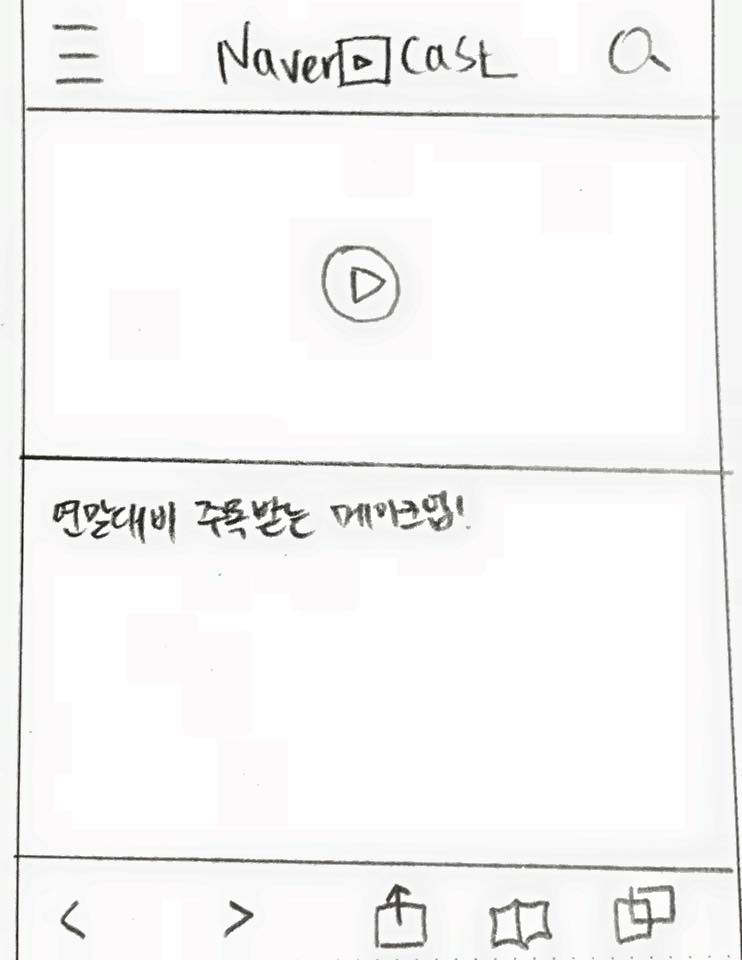 Naver Cast
연말대비 주목받는 메이크업!